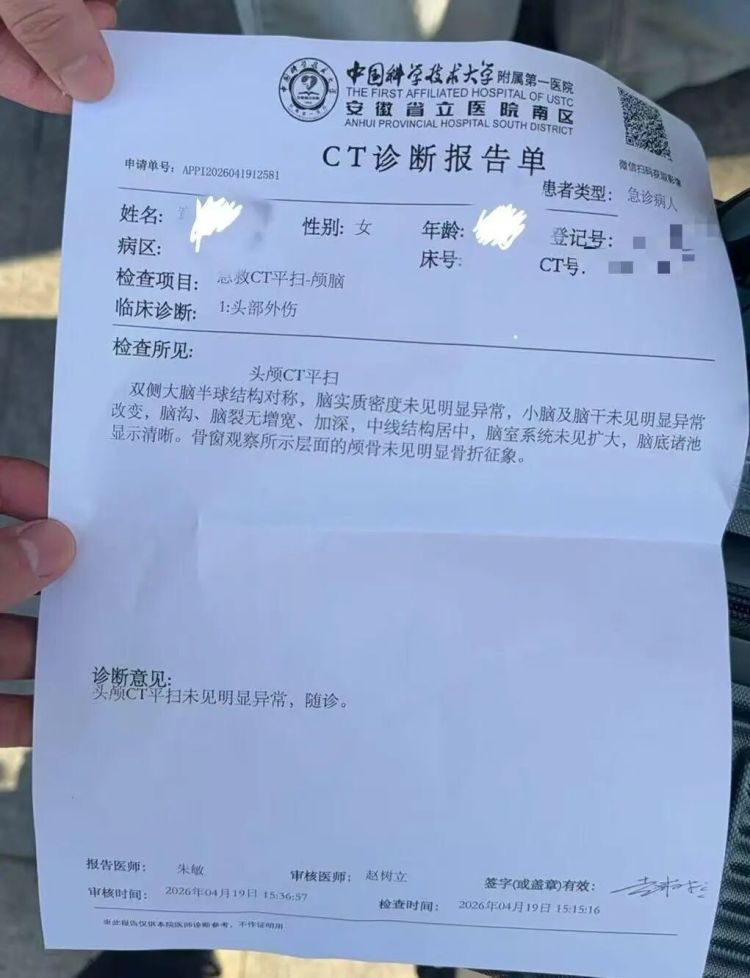 中国科学技术大学附属第一医院
THE FIRST AFFILIATED HOSPITAL OF USTC
安徽省立医院南区
ANHUI PROVINCIAL HOSPITAL SOUTH DISTRICT
微信扫码获取影像
CT诊断报告单
申请单号: APPI2026041912581
患者类型: 急诊病人
姓名: 性别: 女 年龄: 登记号:
病区: 床号: CT号.
检查项目: 急救CT平扫-颅脑
临床诊断: 1:头部外伤
检查所见:
头颅CT平扫
双侧大脑半球结构对称，脑实质密度未见明显异常，小脑及脑干未见明显异常
改变，脑沟、脑裂无增宽、加深，中线结构居中，脑室系统未见扩大，脑底诸池
显示清晰。骨窗观察所示层面的颅骨未见明显骨折征象。
诊断意见:
头颅CT平扫未见明显异常，随诊。
报告医师: 朱敏 审核医师: 赵树立 签字(或盖章)有效:
审核时间: 2026年04月19日 15:36:57 检查时间: 2026年04月19日 15:15:16
此报告仅供本院医师诊断参考，不作证明用